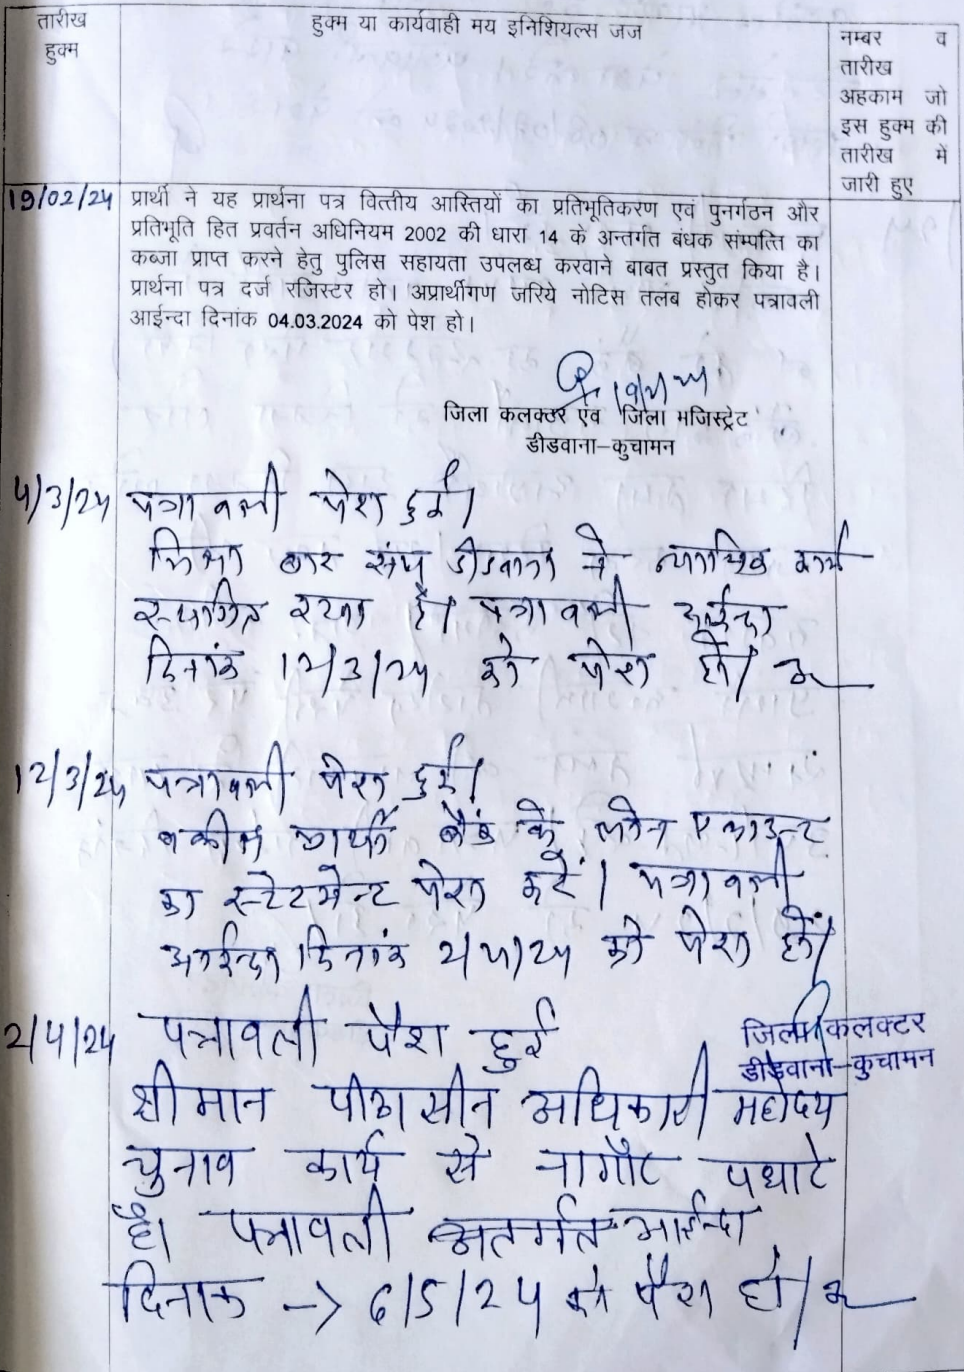 तारीख
हुक्म
हुक्म या कार्यवाही मय इनिशियल्स जज
नम्बर व
तारीख
अहकाम जो
इस हुक्म की
तारीख में
जारी हुए
19/02/24 प्रार्थी ने यह प्रार्थना पत्र वित्तीय आस्तियों का प्रतिभूतिकरण एवं पुनर्गठन और
प्रतिभूति हित प्रवर्तन अधिनियम 2002 की धारा 14 के अन्तर्गत बंधक संम्पत्ति का
कब्जा प्राप्त करने हेतु पुलिस सहायता उपलब्ध करवाने बाबत प्रस्तुत किया है।
प्रार्थना पत्र दर्ज रजिस्टर हो। अप्रार्थीगण जरिये नोटिस तलब होकर पत्रावली
आईन्दा दिनांक 04.03.2024 को पेश हो।
जिला कलक्टर एंव जिला मजिस्ट्रेट
डीडवाना–कुचामन
4/3/24 पत्रावली पेश हुई।
जिला बार संघ डीडवाना ने न्यायिक कार्य
स्थगित रखा है। पत्रावली आईन्दा
दिनांक 12/3/24 को पेश हो।
12/3/24 पत्रावली पेश हुई।
वकील प्रार्थी बैंक के लोन एकाउन्ट
का स्टेटमेन्ट पेश करें। पत्रावली
आईन्दा दिनांक 2/4/24 को पेश हो।
जिला कलक्टर
डीडवाना–कुचामन
2/4/24 पत्रावली पेश हुई
श्रीमान पीठासीन अधिकारी महोदय
चुनाव कार्य से नागौर पधारे
है। पत्रावली आईन्दा
दिनाक -> 6/5/24 को पेश हो।